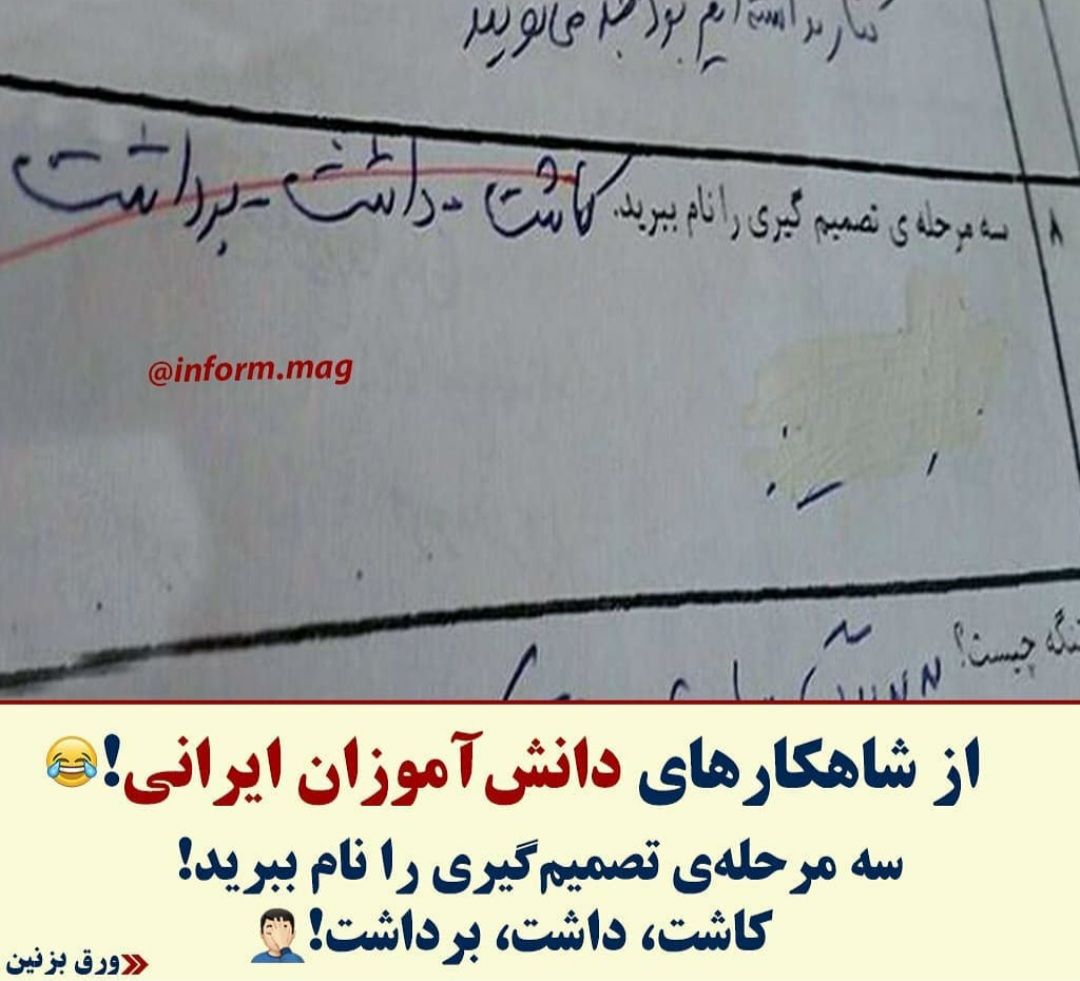 می‌گویند
۸ سه مرحله ی تصمیم گیری را نام ببرید. کاشت - داشت - برداشت
@inform.mag
چیست؟
از شاهکارهای دانش‌آموزان ایرانی!😂
سه مرحله‌ی تصمیم‌گیری را نام ببرید!
کاشت، داشت، برداشت!🤦🏻‍♂️
«ورق بزنین